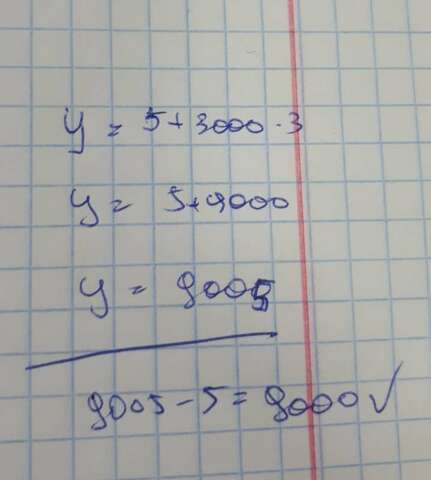 y = 5+3000·3
y = 5+9000
y = 9005
9005-5=9000✓